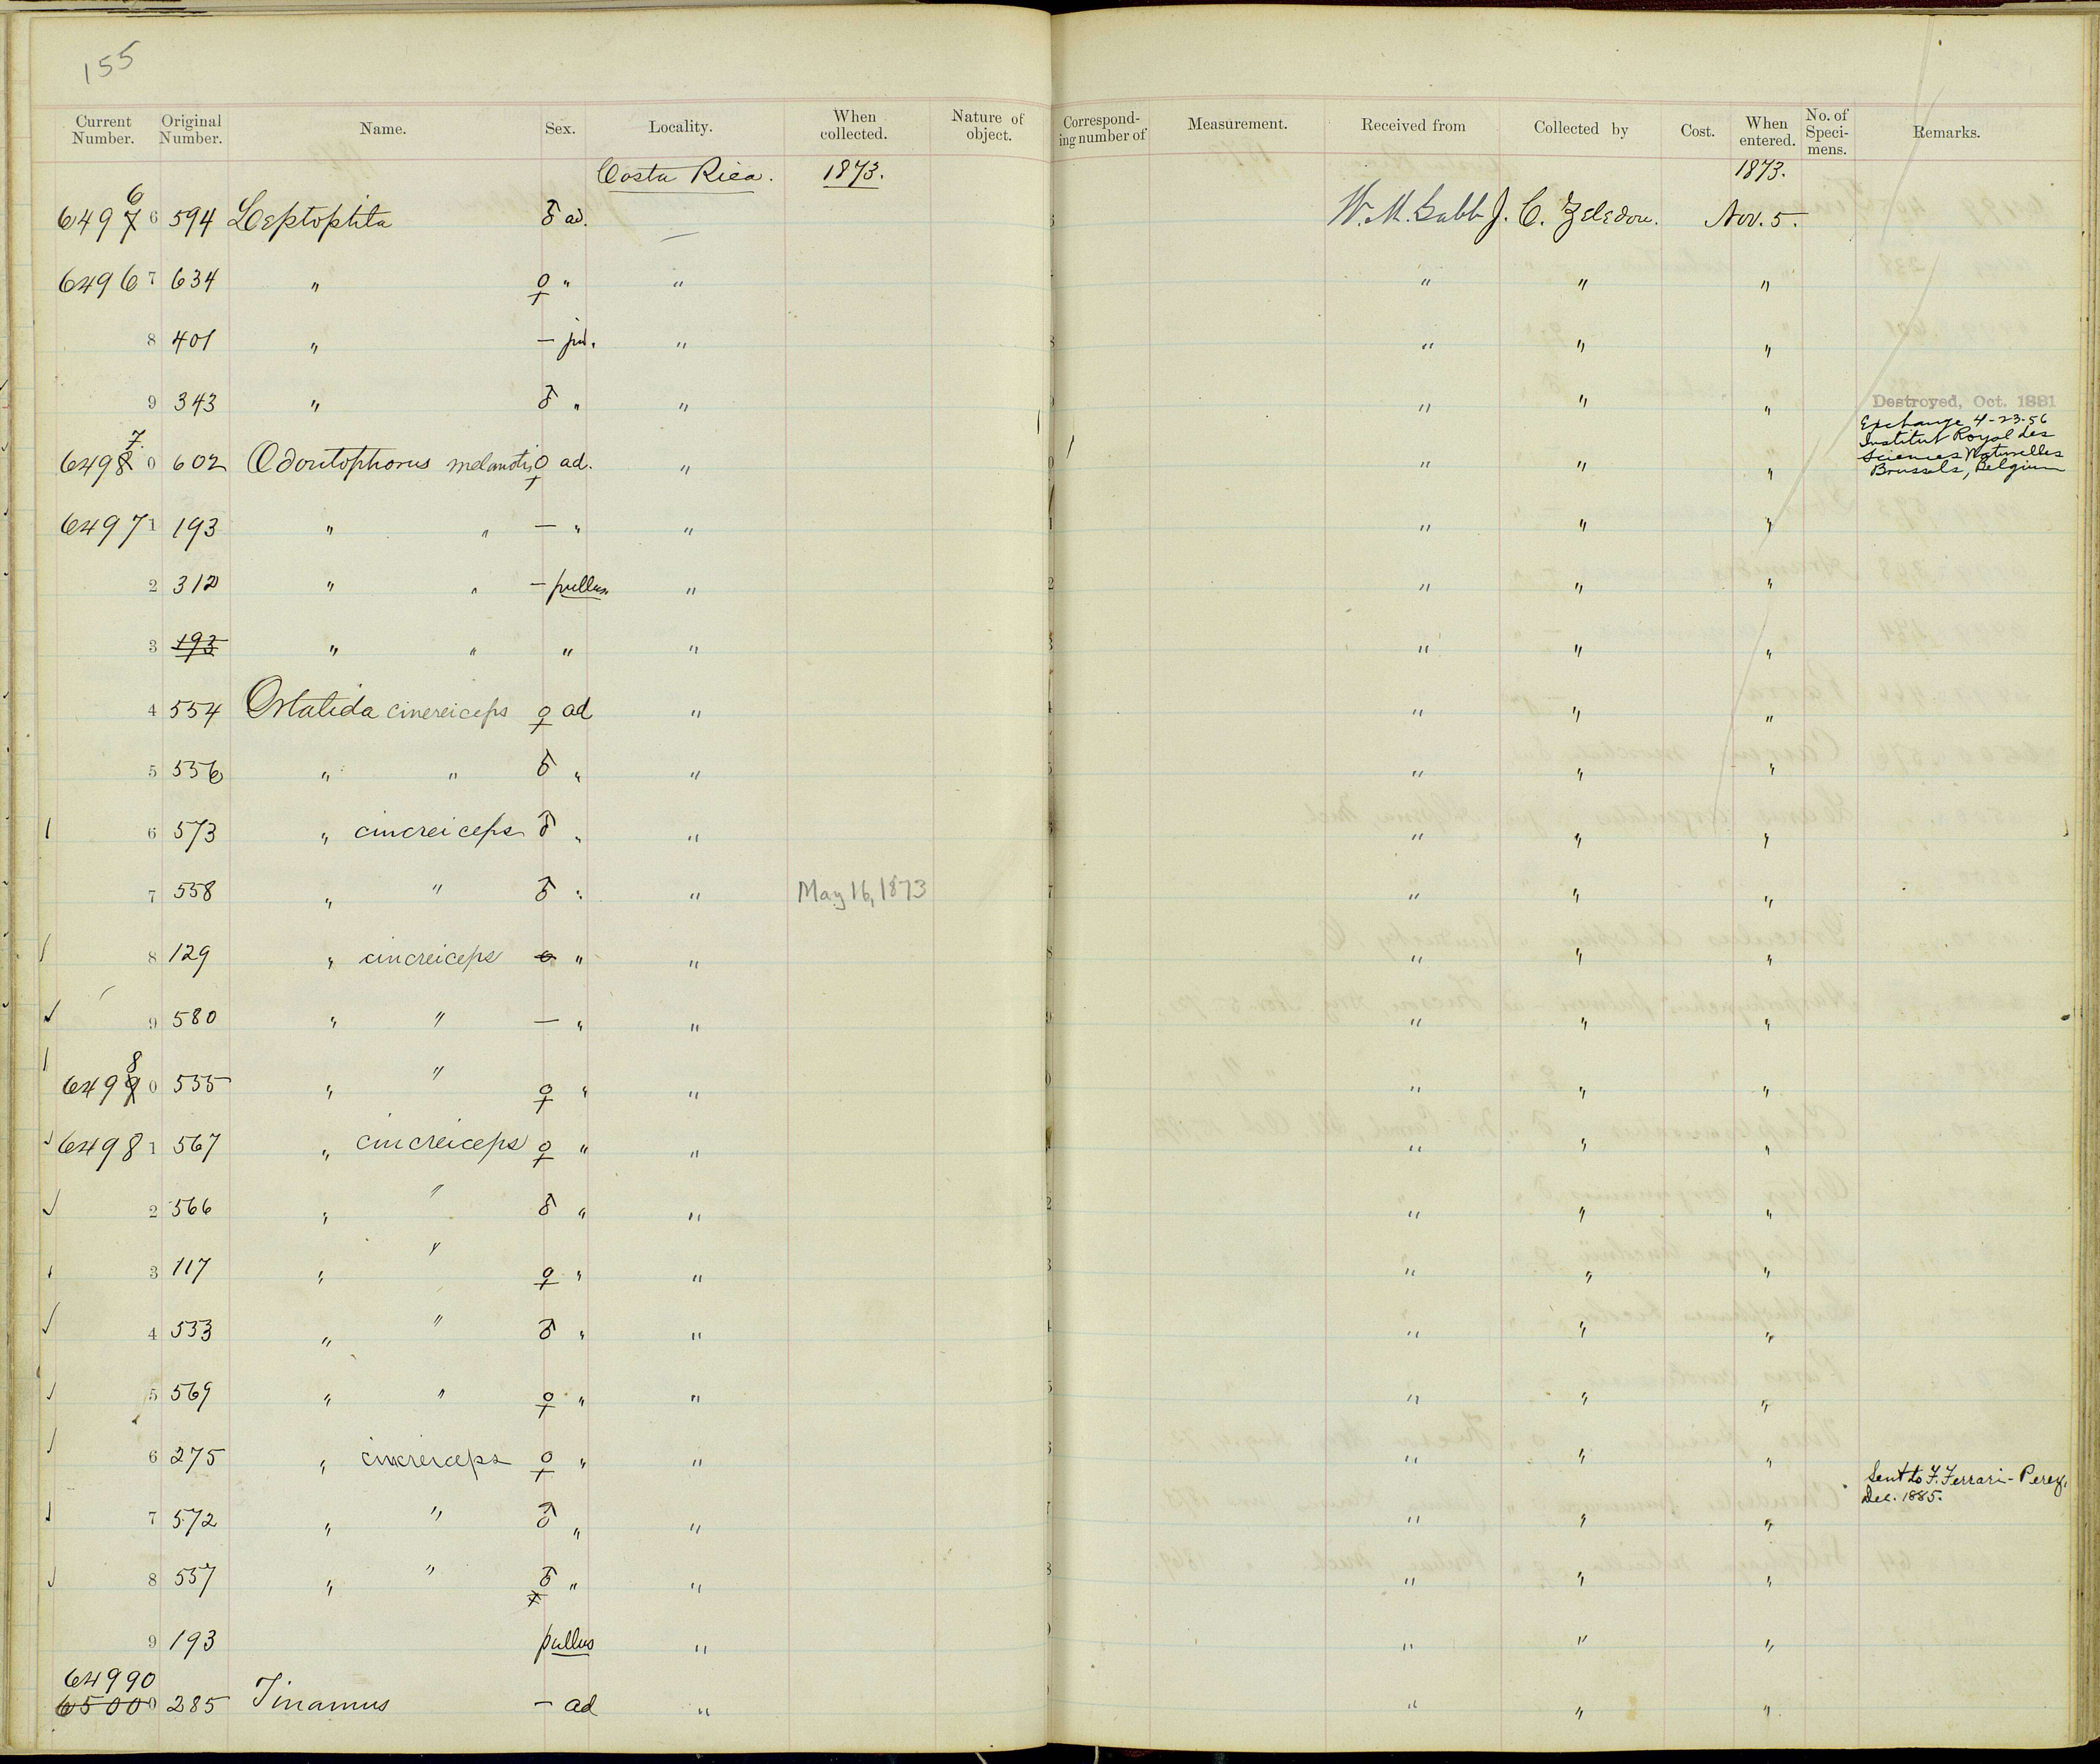 155
Current Number. Original Number. Name. Sex. Locality. When collected. Nature of object. Correspond-ing number of Measurement. Received from Collected by Cost. When entered. No. of Speci-mens. Remarks.
Costa Rica. 1873. 1873.
6
64976 594 Leptoptila ♂ ad. — W. M. Gabb J. C. Zeledon. Nov. 5.
64967 634 " ♀ " " " " "
8 401 " — juv. " " " "
9 343 " ♂ " " " " " Destroyed, Oct. 1881
7
64980 602 Odontophorus melanotis ♀ ad. " " " " Exchange 4-23-56
Institut Royal des
Sciences Naturelles
Brussels, Belgium
64971 193 " " — " " " " "
2 312 " " — pullus " " " "
3 193 " " " " " " "
4 554 Ortalida cinereiceps ♀ ad " " " "
5 556 " " ♂ " " " " "
6 573 " cinereiceps ♂ " " " " "
7 558 " " ♂ " " May 16, 1873 " " "
8 129 " cinereiceps " " " " "
9 580 " " — " " " " "
8
64990 535 " " ♀ " " " " "
64981 567 " cinereiceps ♀ " " " " "
2 566 " " ♂ " " " " "
3 117 " " ♀ " " " " "
4 533 " " ♂ " " " " "
5 569 " " ♀ " " " " "
6 275 " cinereiceps ♀ " " " " "
Sent to F. Ferrari-Perez,
Dec. 1885.
7 572 " " ♂ " " " " "
8 557 " " ♂ " " " " "
9 193 pullus " " " "
64990
65000 285 Tinamus — ad " " " "